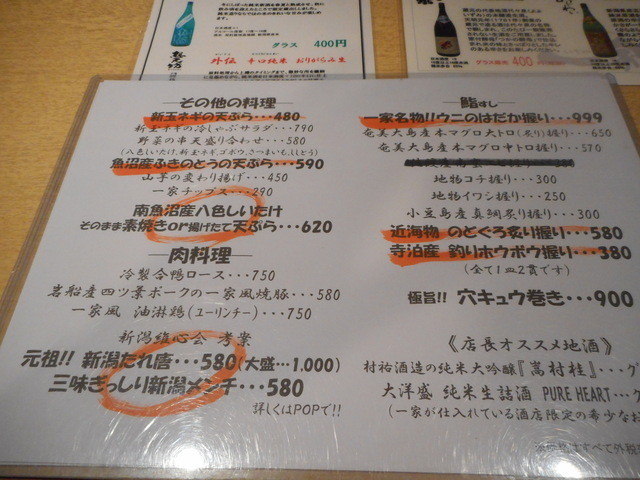 グラス 400円
外伝 辛口純米 おりがらみ生
グラス売 400円
その他の料理
新玉ネギの天ぷら・・・480
新玉ネギの冷しゃぶサラダ・・・790
野菜の串天盛り合わせ・・・580
(八色しいたけ、新玉ネギ、ゴボウ、さつまいも、ししとう)
魚沼産ふきのとうの天ぷら・・・590
山芋の変わり揚げ・・・450
一家チップス・・・290
南魚沼産八色しいたけ
そのまま素焼きor揚げたて天ぷら・・・620
肉料理
冷製合鴨ロース・・・750
岩船産四ツ葉ポークの一家風焼豚・・・580
一家風 油淋鶏(ユーリンチー)・・・750
新潟維心会 考案
元祖!! 新潟たれ唐・・・580(大盛…1.000)
三味ぎっしり新潟メンチ・・・580
詳しくはPOPで!!
鮨すし
一家名物!!ウニのはだか握り・・・999
奄美大島産本マグロ大トロ(炙り)握り・・・650
奄美大島産本マグロ中トロ握り・・・570
地物コチ握り・・・300
地物イワシ握り・・・250
小豆島産真鯛炙り握り・・・300
近海物 のどぐろ炙り握り・・・580
寺泊産 釣りホウボウ握り・・・380
(全て1皿2貫です)
極旨!! 穴キュウ巻き・・・900
《店長オススメ地酒》
村祐酒造の純米大吟醸『嵩村桂』・・・グ
大洋盛 純米生詰酒 PURE HEART・・・グ
(一家が仕入れている酒店限定の希少なお
すべて外税